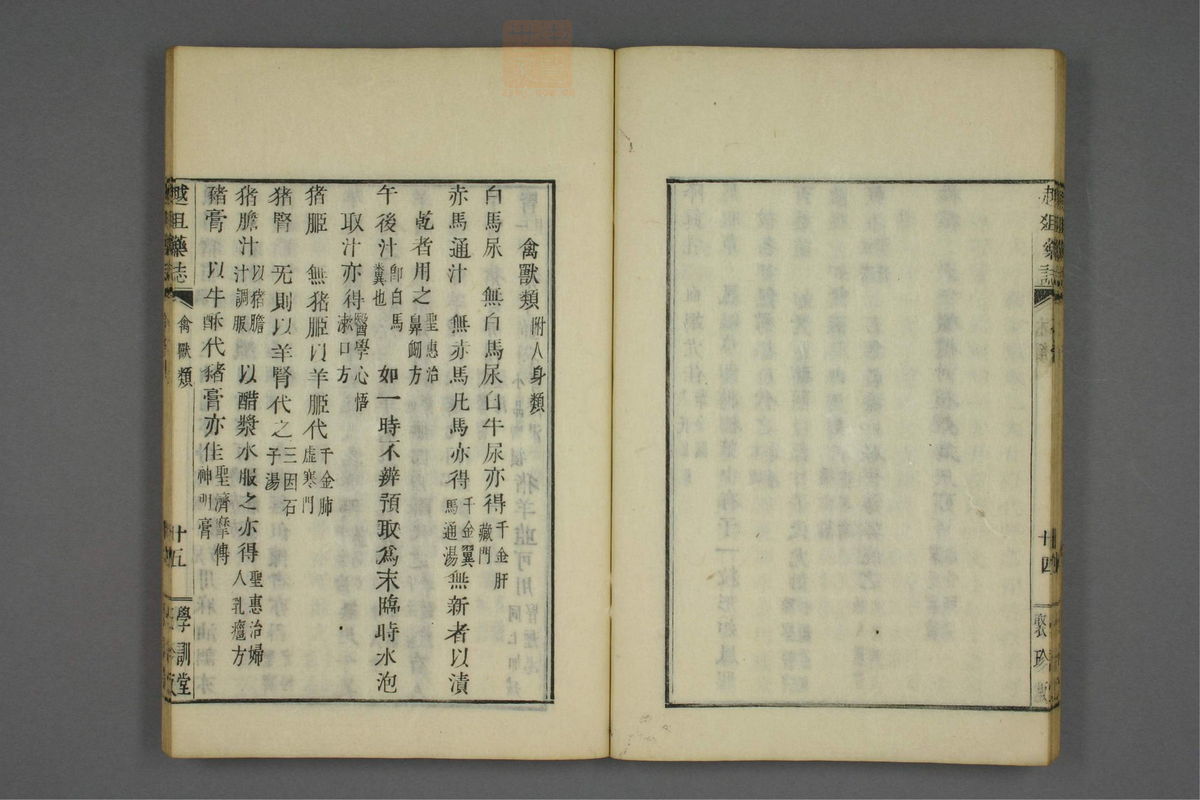 禽獸類附人身類
白馬尿 無白馬尿白牛尿亦得千金肝藏門
赤馬通汁 無赤馬凡馬亦得千金翼馬通湯無新者以漬
乾者用之聖惠治鼻衂方
午後汁卽白馬糞也 如一時不辨預取爲末臨時水泡
取汁亦得醫學心悟漱口方
猪脬 無猪脬以羊脬代千金肺虛寒門
猪腎 无則以羊腎代之三因石子湯
猪膽汁以猪膽汁調服以醋漿水服之亦得聖惠治婦人乳癰方
豬膏 以牛酥代豬膏亦佳聖濟摩傅神明膏
越俎藥誌
禽獸類
十五
學訓堂
越俎藥誌
廿四
聚珍